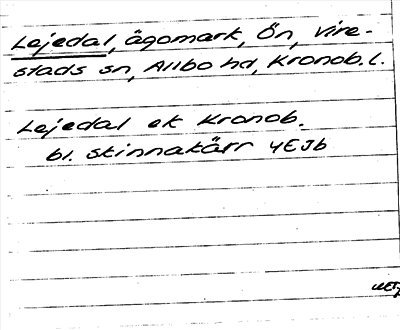 Lejedal, ägomark, Ön, Vire-
stads sn, Allbo hd, Kronob. l.
Lejedal ek Kronob.
bl. Skinnakärr 4E3b